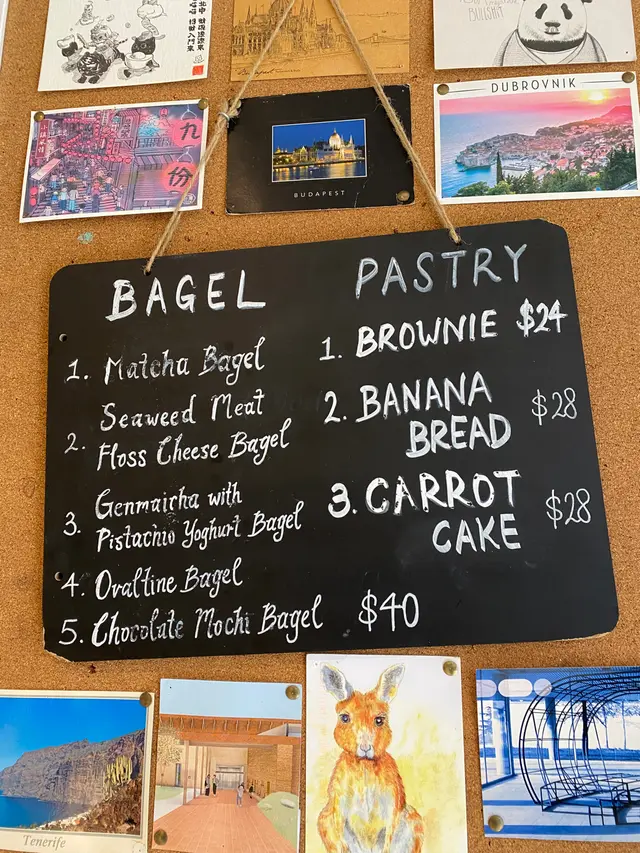 BULLSHIT
DUBROVNIK
九
份
BUDAPEST
BAGEL
1. Matcha Bagel
Seaweed Meat
2. Floss Cheese Bagel
3. Genmaicha with
Pistachio Yoghurt Bagel
4. Ovaltine Bagel
5. Chocolate Mochi Bagel $40
PASTRY
1. BROWNIE $24
2. BANANA $28
BREAD
3. CARROT $28
CAKE
Tenerife